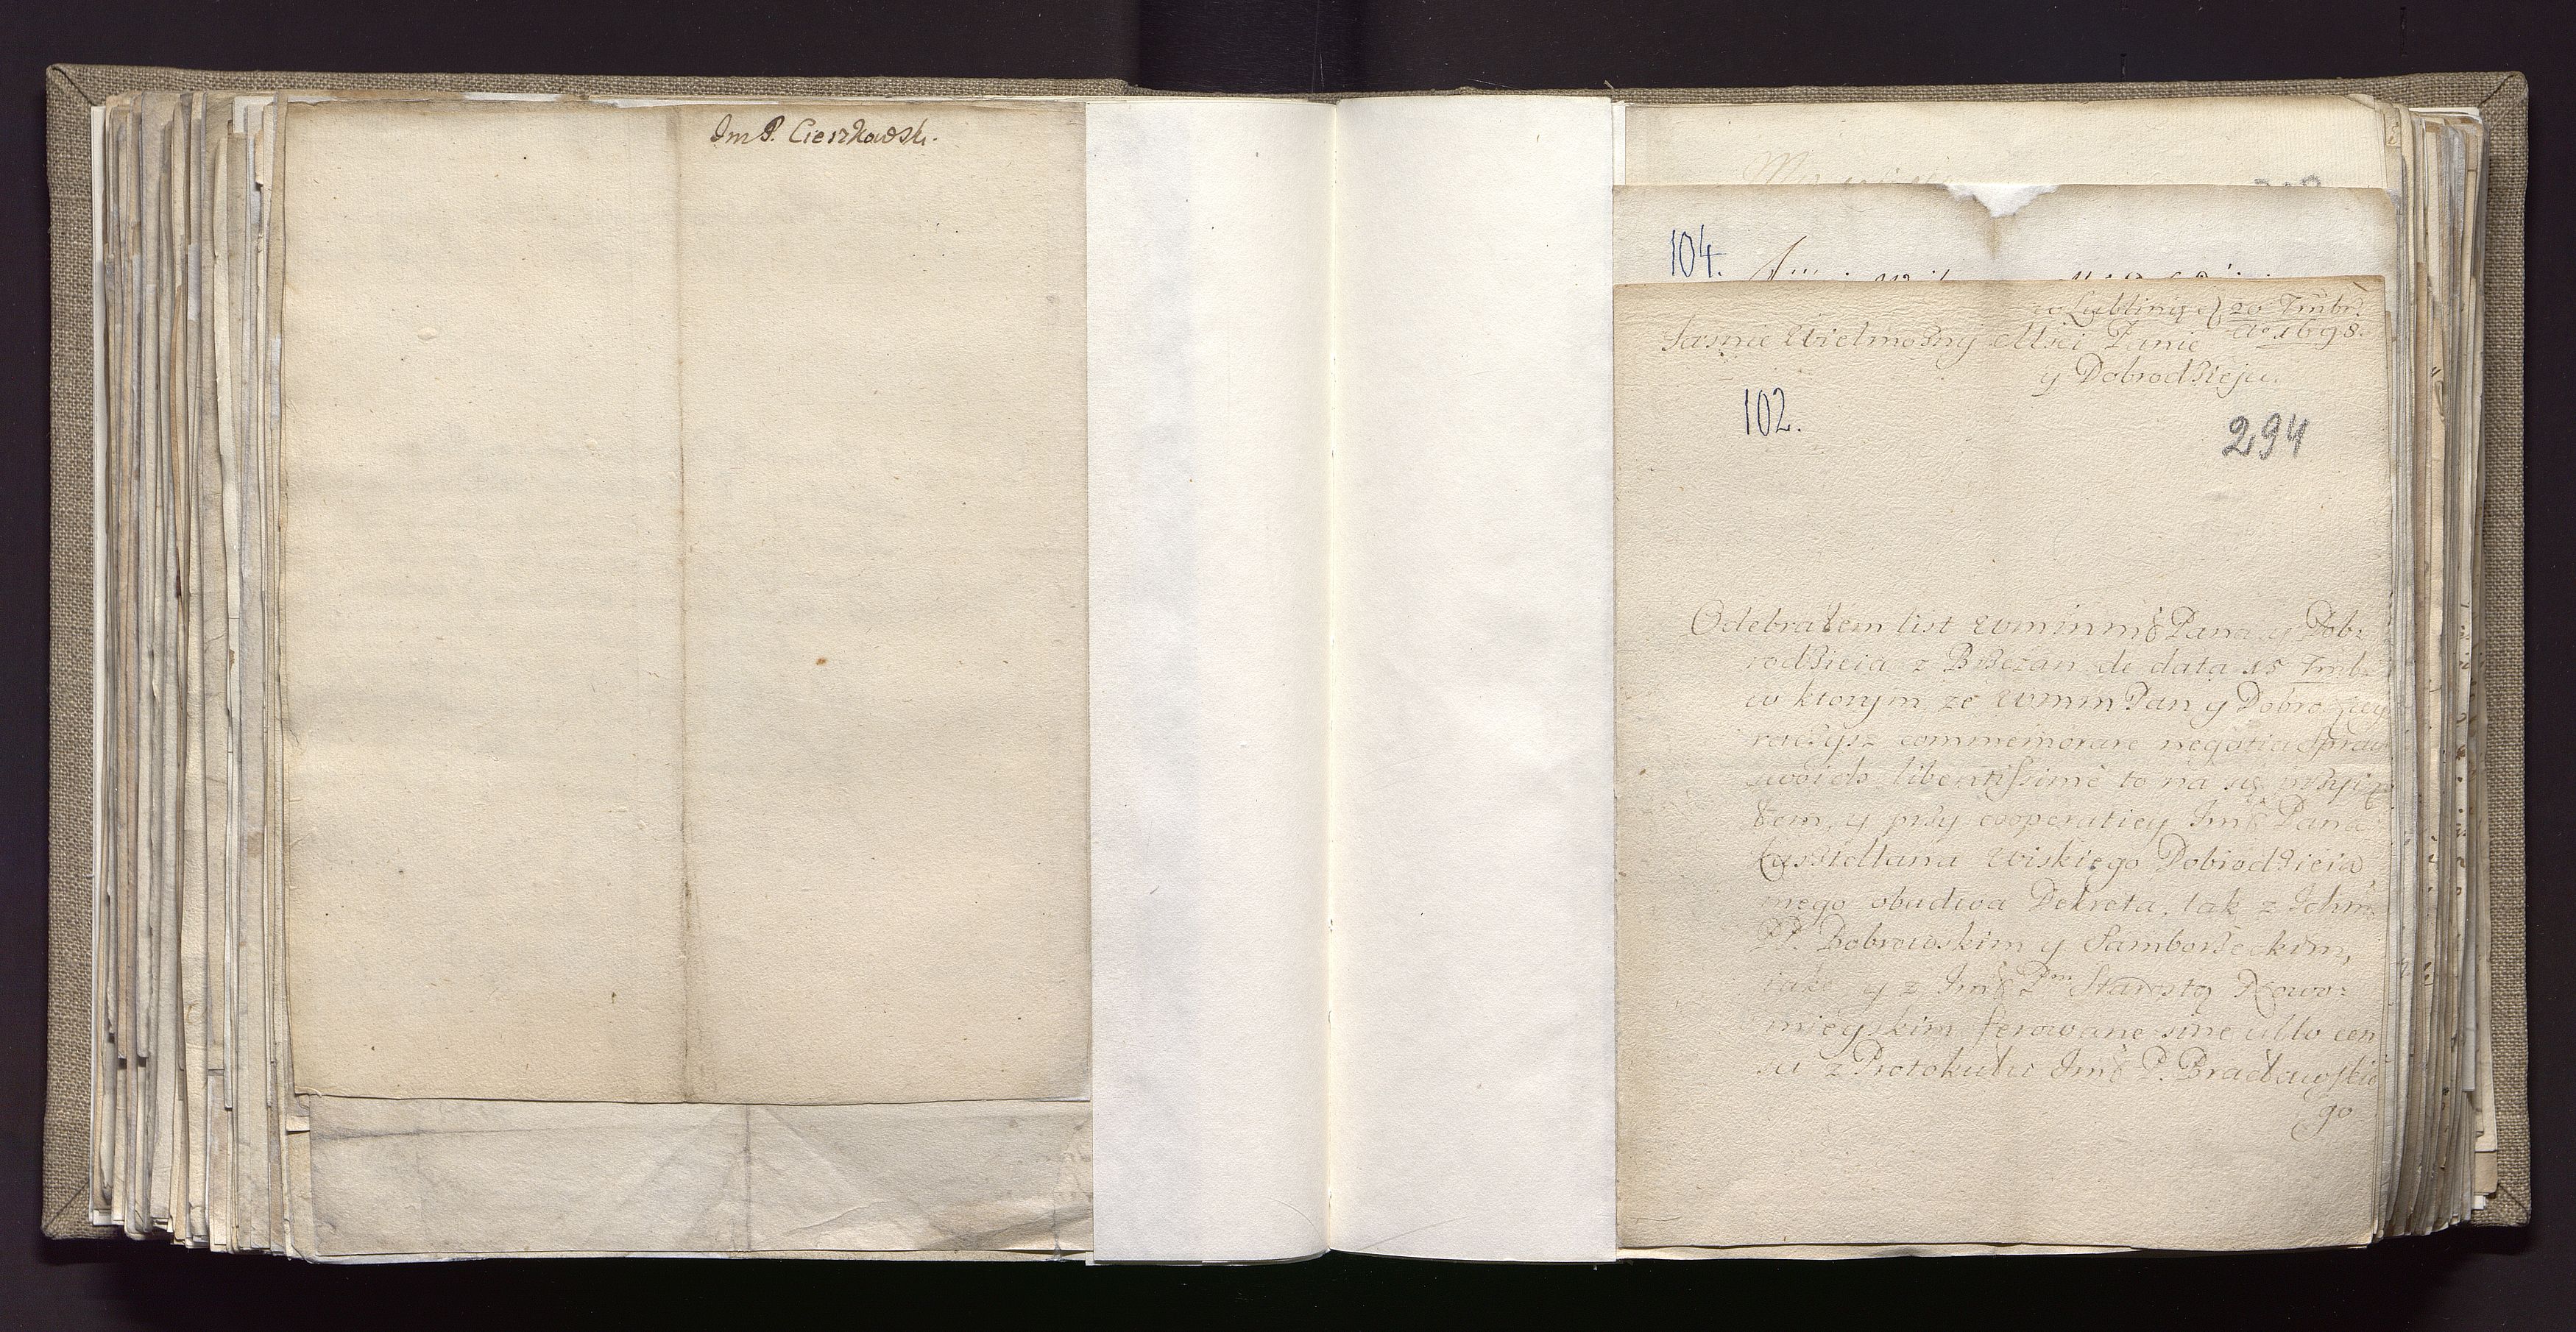 Im P. Cieszkowsk.
104.
w Lublinie d 20 7mbr.
Ao 1698.
Jasnie Wielmożny Mści Panie
y Dobrodzieju.
102.
294
Odebrałem list wmmmść Pana y Dob:
rodzieia z Brzezan de data 15 7mbr
w ktorym ze wmm Pan y Dobrodziey
raczysz commemorare negotia Spraw
swoich libentissimè to na się przyią
łem, y przy cooperatiey Imść Pana
Kasztellana Wiskiego Dobrodzieia
mego obudwa Dekreta, tak z Ichm
PP. Bobrowskim y Samborzeckim,
iako y z Imść Pm Starostą Nowo:
mieyskim ferowane sine ullo cen
su z Protokułu Imść P. Bracławskie
go